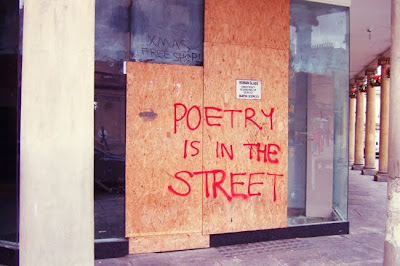 XMAS
FREE SHOP!
POETRY
IS IN THE
STREET